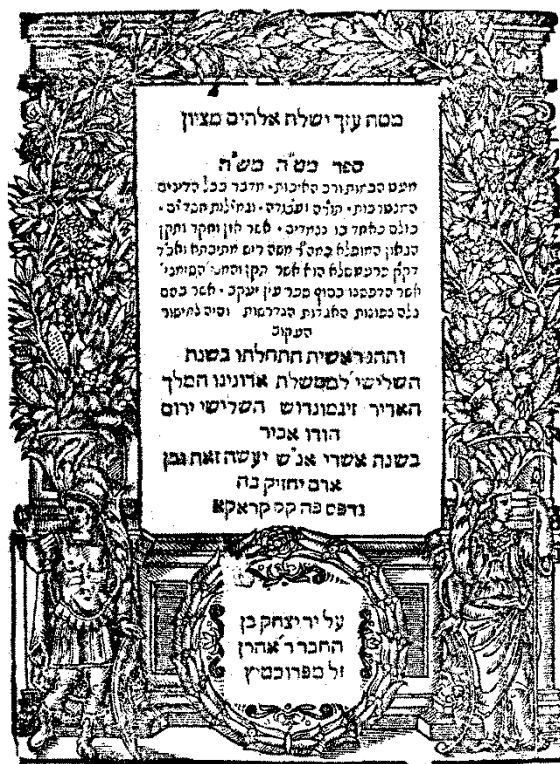 מטה עזך ישלח אלהים מציון
ספר מט״ה מש״ה
מעט הכמות ורב האיכות · מדבר בכל הדינים
המצטרכות · תורה ועבודה · וגמילות חסדים ·
כולם כאחד בו נצמדים · אשר אזן וחקר ותקן
הגאון המופלא כמה״ר משה ריש מתיבתא ואב״ד
דק״ק פרעמסלא הוא אשר תקן וחבר הסימני׳
אשר הדפסנו בסוף ספר עין יעקב · אשר בהם
גלה צפונות האגדות הנדרשות · והיה למישור
העקוב
ותהי ראשית התחלתו בשנת
השלישי׳ לממשלת אדונינו המלך
האדיר זיגמונדוש השלישי ירום
הודו אכיר
בשנת אשרי אנ״ש יעשה זאת ובן
אדם יחזיק בה
נדפס פה קק קראקא
על יד יצחק בן
החבר ר׳ אהרן
זל מפרוסטיץ